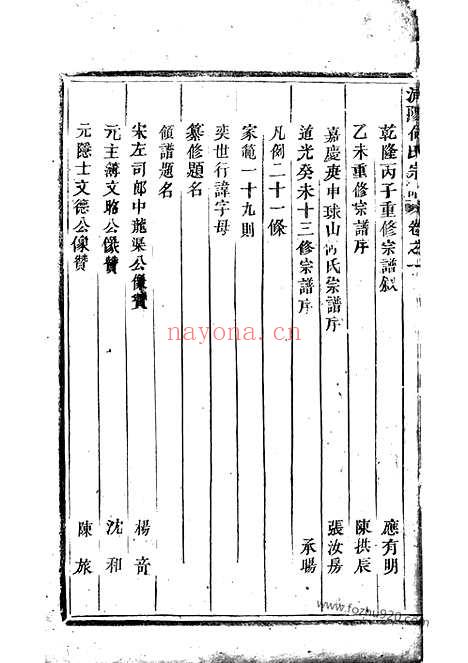 浦陽何氏宗譜卷之一
乾隆丙子重修宗譜叙 應有明
乙未重修宗譜序 陳拱辰
嘉慶庚申球山何氏宗譜序 張汝房
道光癸未十三修宗譜序 承暘
凡例二十一條
家範一十九則
奕世行諱字母
纂修題名
領譜題名
宋左司郎中龍渠公像贊 楊音
元主溥文昭公像贊 沈和
元隱士文德公像贊 陳旅
nayona.cn
www.fozhu920.com